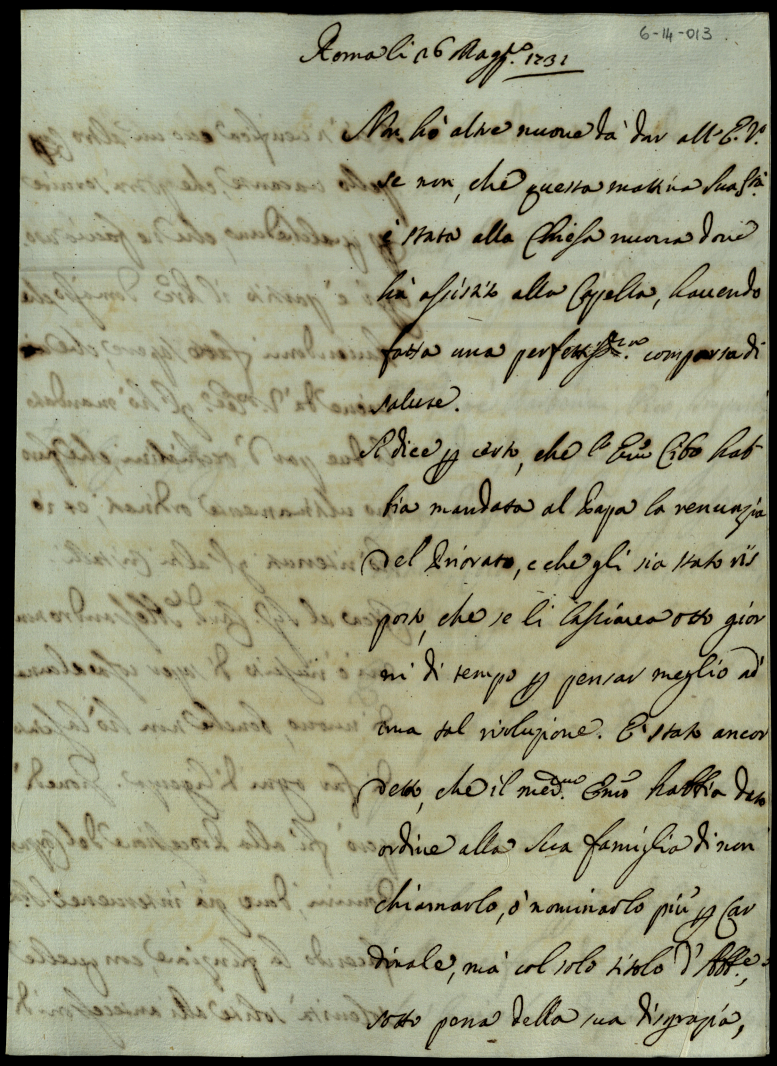 6-14-013
Roma li 26 Magg.o 1731
Non hò altre nuove dà dar all'E.V.
se non, che questa mattina Sua Stà
è stata alla Chiesa nuova dove
hà assistito alla Capella, havendo
fatta una comparsa di
salute.
Si dice p certo, che l'Emo Cibo hab
bia mandata al Papa la renunzia
del Priorato, e che gli sia stato ris
posto, che se li lasciavea otto gior
ni di tempo p pensar meglio ad
una tal risoluzione. E' stato ancor
detto, che il med.mo Emo habbia dato
ordine alla sua famiglia di non
chiamarlo, ò nominarlo più p Car
dinale, mà col solo titolo d'Abb.e,
sotto pena della sua disgrazia,